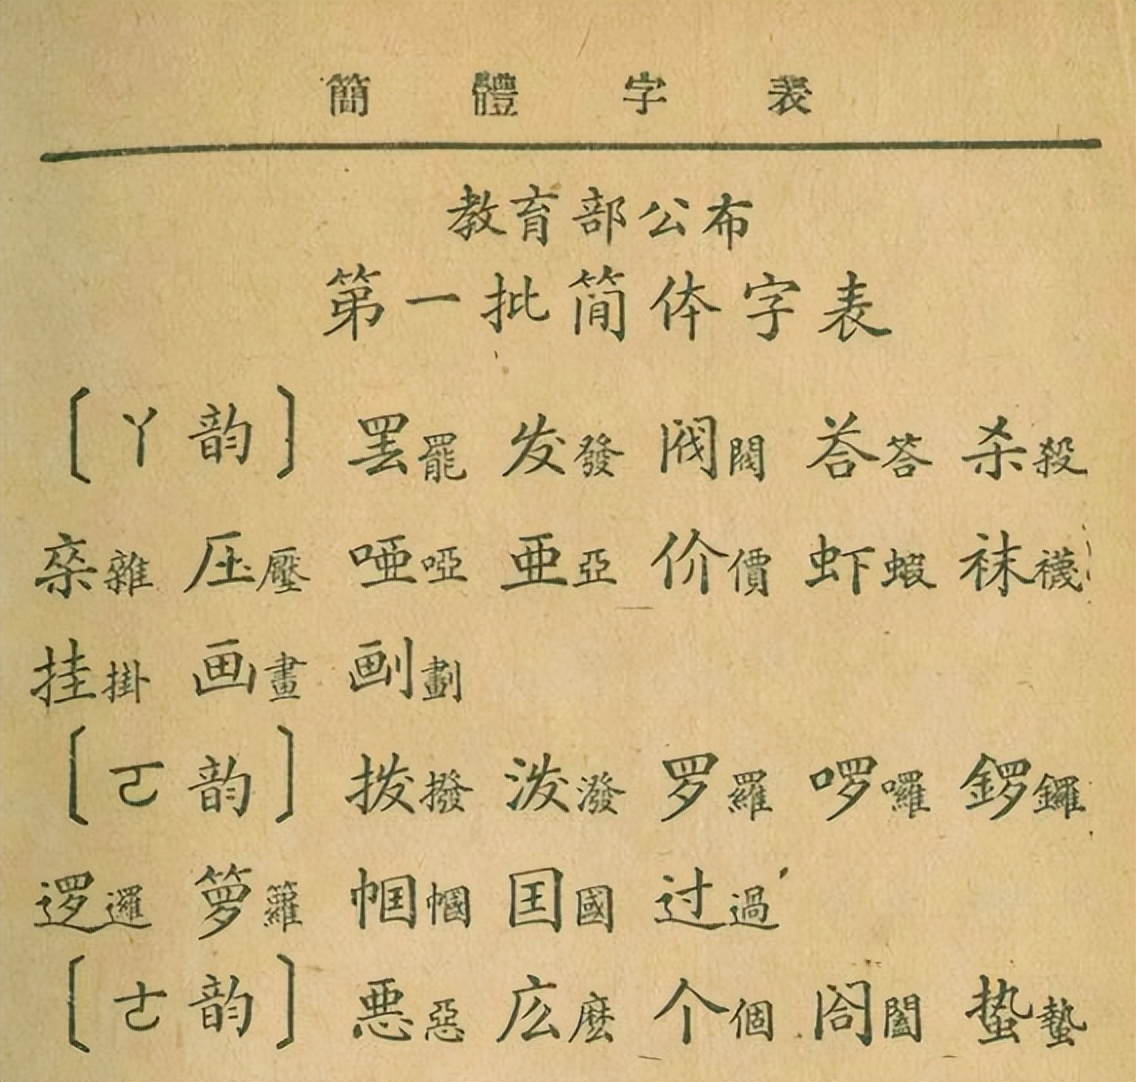 簡體字表
教育部公布
第一批简体字表
〔ㄚ韵〕 罢罷 发發 阀閥 荅答 杀殺
杂雜 压壓 唖啞 亜亞 价價 虾蝦 袜襪
挂掛 画畫 㓰劃
〔ㄛ韵〕 拨撥 泼潑 罗羅 啰囉 锣鑼
逻邏 箩籮 帼幗 囯國 过過
〔ㄜ韵〕 悪惡 庅麼 个個 𬮤闔 蛰蟄